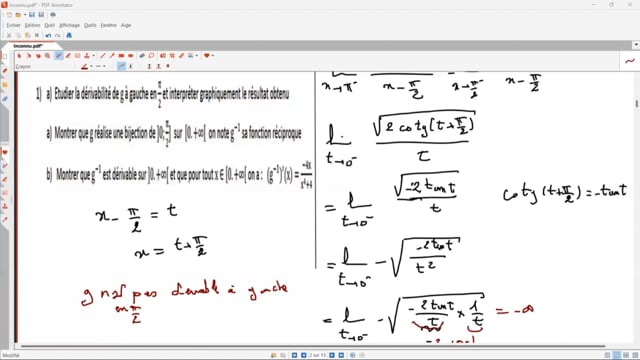 inconnu.pdf* - PDF Annotator
Fichier Edition Ajout Affichage Outils Fenêtre Aide
inconnu.pdf*
Crayon
1) a) Etudier la dérivabilité de g à gauche en π/2 et interpréter graphiquement le résultat obtenu
a) Montrer que g réalise une bijection de ]0; π/2] sur [0, +∞[ on note g⁻¹ sa fonction réciproque
b) Montrer que g⁻¹ est dérivable sur ]0, +∞[ et que pour tout x ∈ [0, +∞[ on a : (g⁻¹)'(x) = -4x/(x⁴+4)
x - π/2 = t
x = t + π/2
g n'est pas dérivable à gauche
en π/2
x - π/2 x - π/2
lim t→0⁻ √(2 cotg(t+π/2)) / t
= lim t→0⁻ √(-2 tan t) / t
cotg(t+π/2) = -tan t
= lim t→0⁻ -√(-2 tan t / t²)
= lim t→0⁻ -√(-2 tan t / t × 1/t) = -∞
2 sur 13